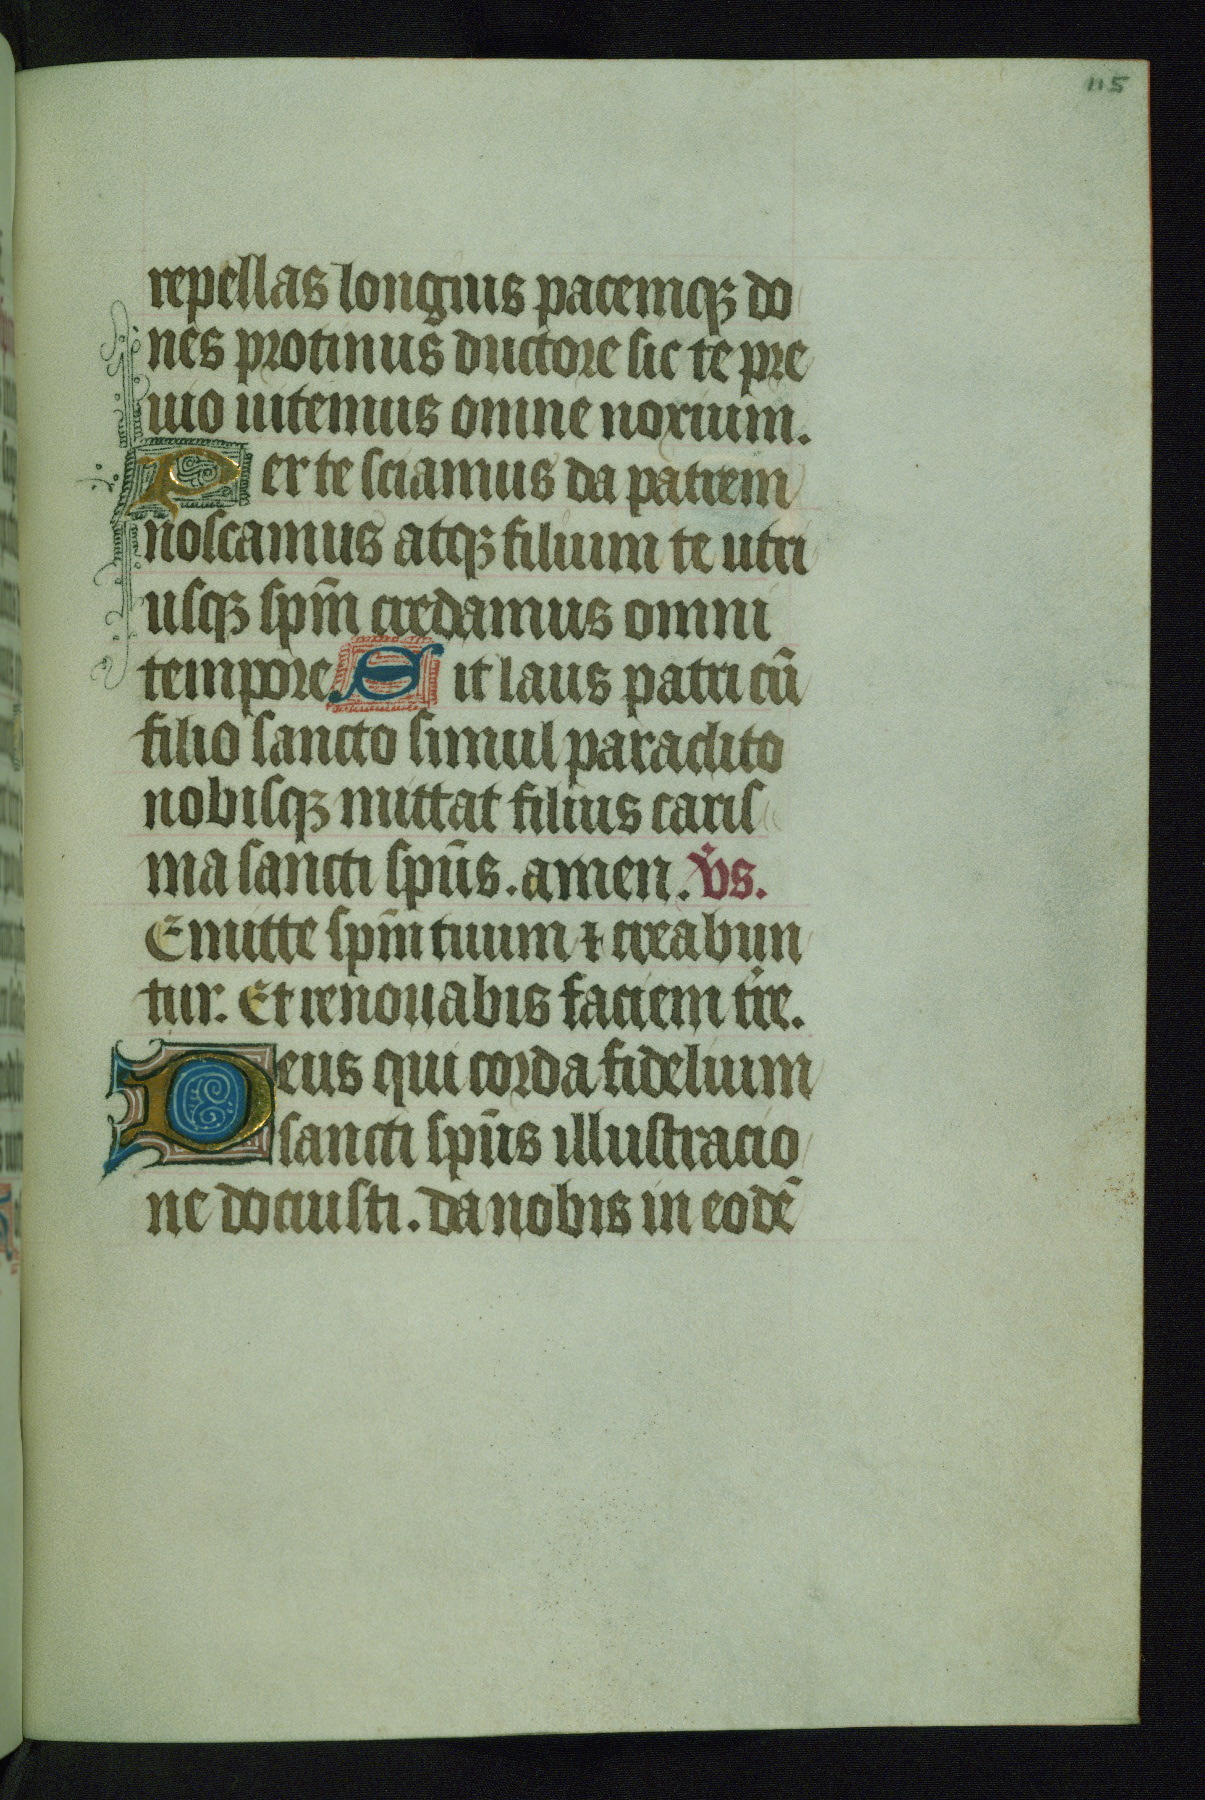 115
repellas longius pacemqꝫ do
nes protinus ductore sic te pre
uio uitemus omne noxium.
Per te sciamus da patrem
noscamus atqꝫ filium te utri
usqꝫ sp̄m credamus omni
tempore. Sit laus patri cū
filio sancto simul paraclito
nobisqꝫ mittat filius caris
ma sancti sp̄us. amen. v̄s.
Emitte sp̄m tuum ⁊ creabun
tur. Et renouabis faciem tr̄e.
Deus qui corda fidelium
sancti sp̄us illustracio
ne docuisti. da nobis in eodē